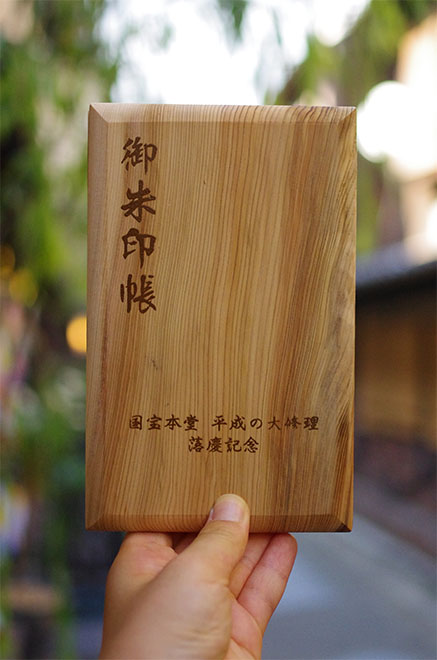 御朱印帳
国宝本堂 平成の大修理
落慶記念